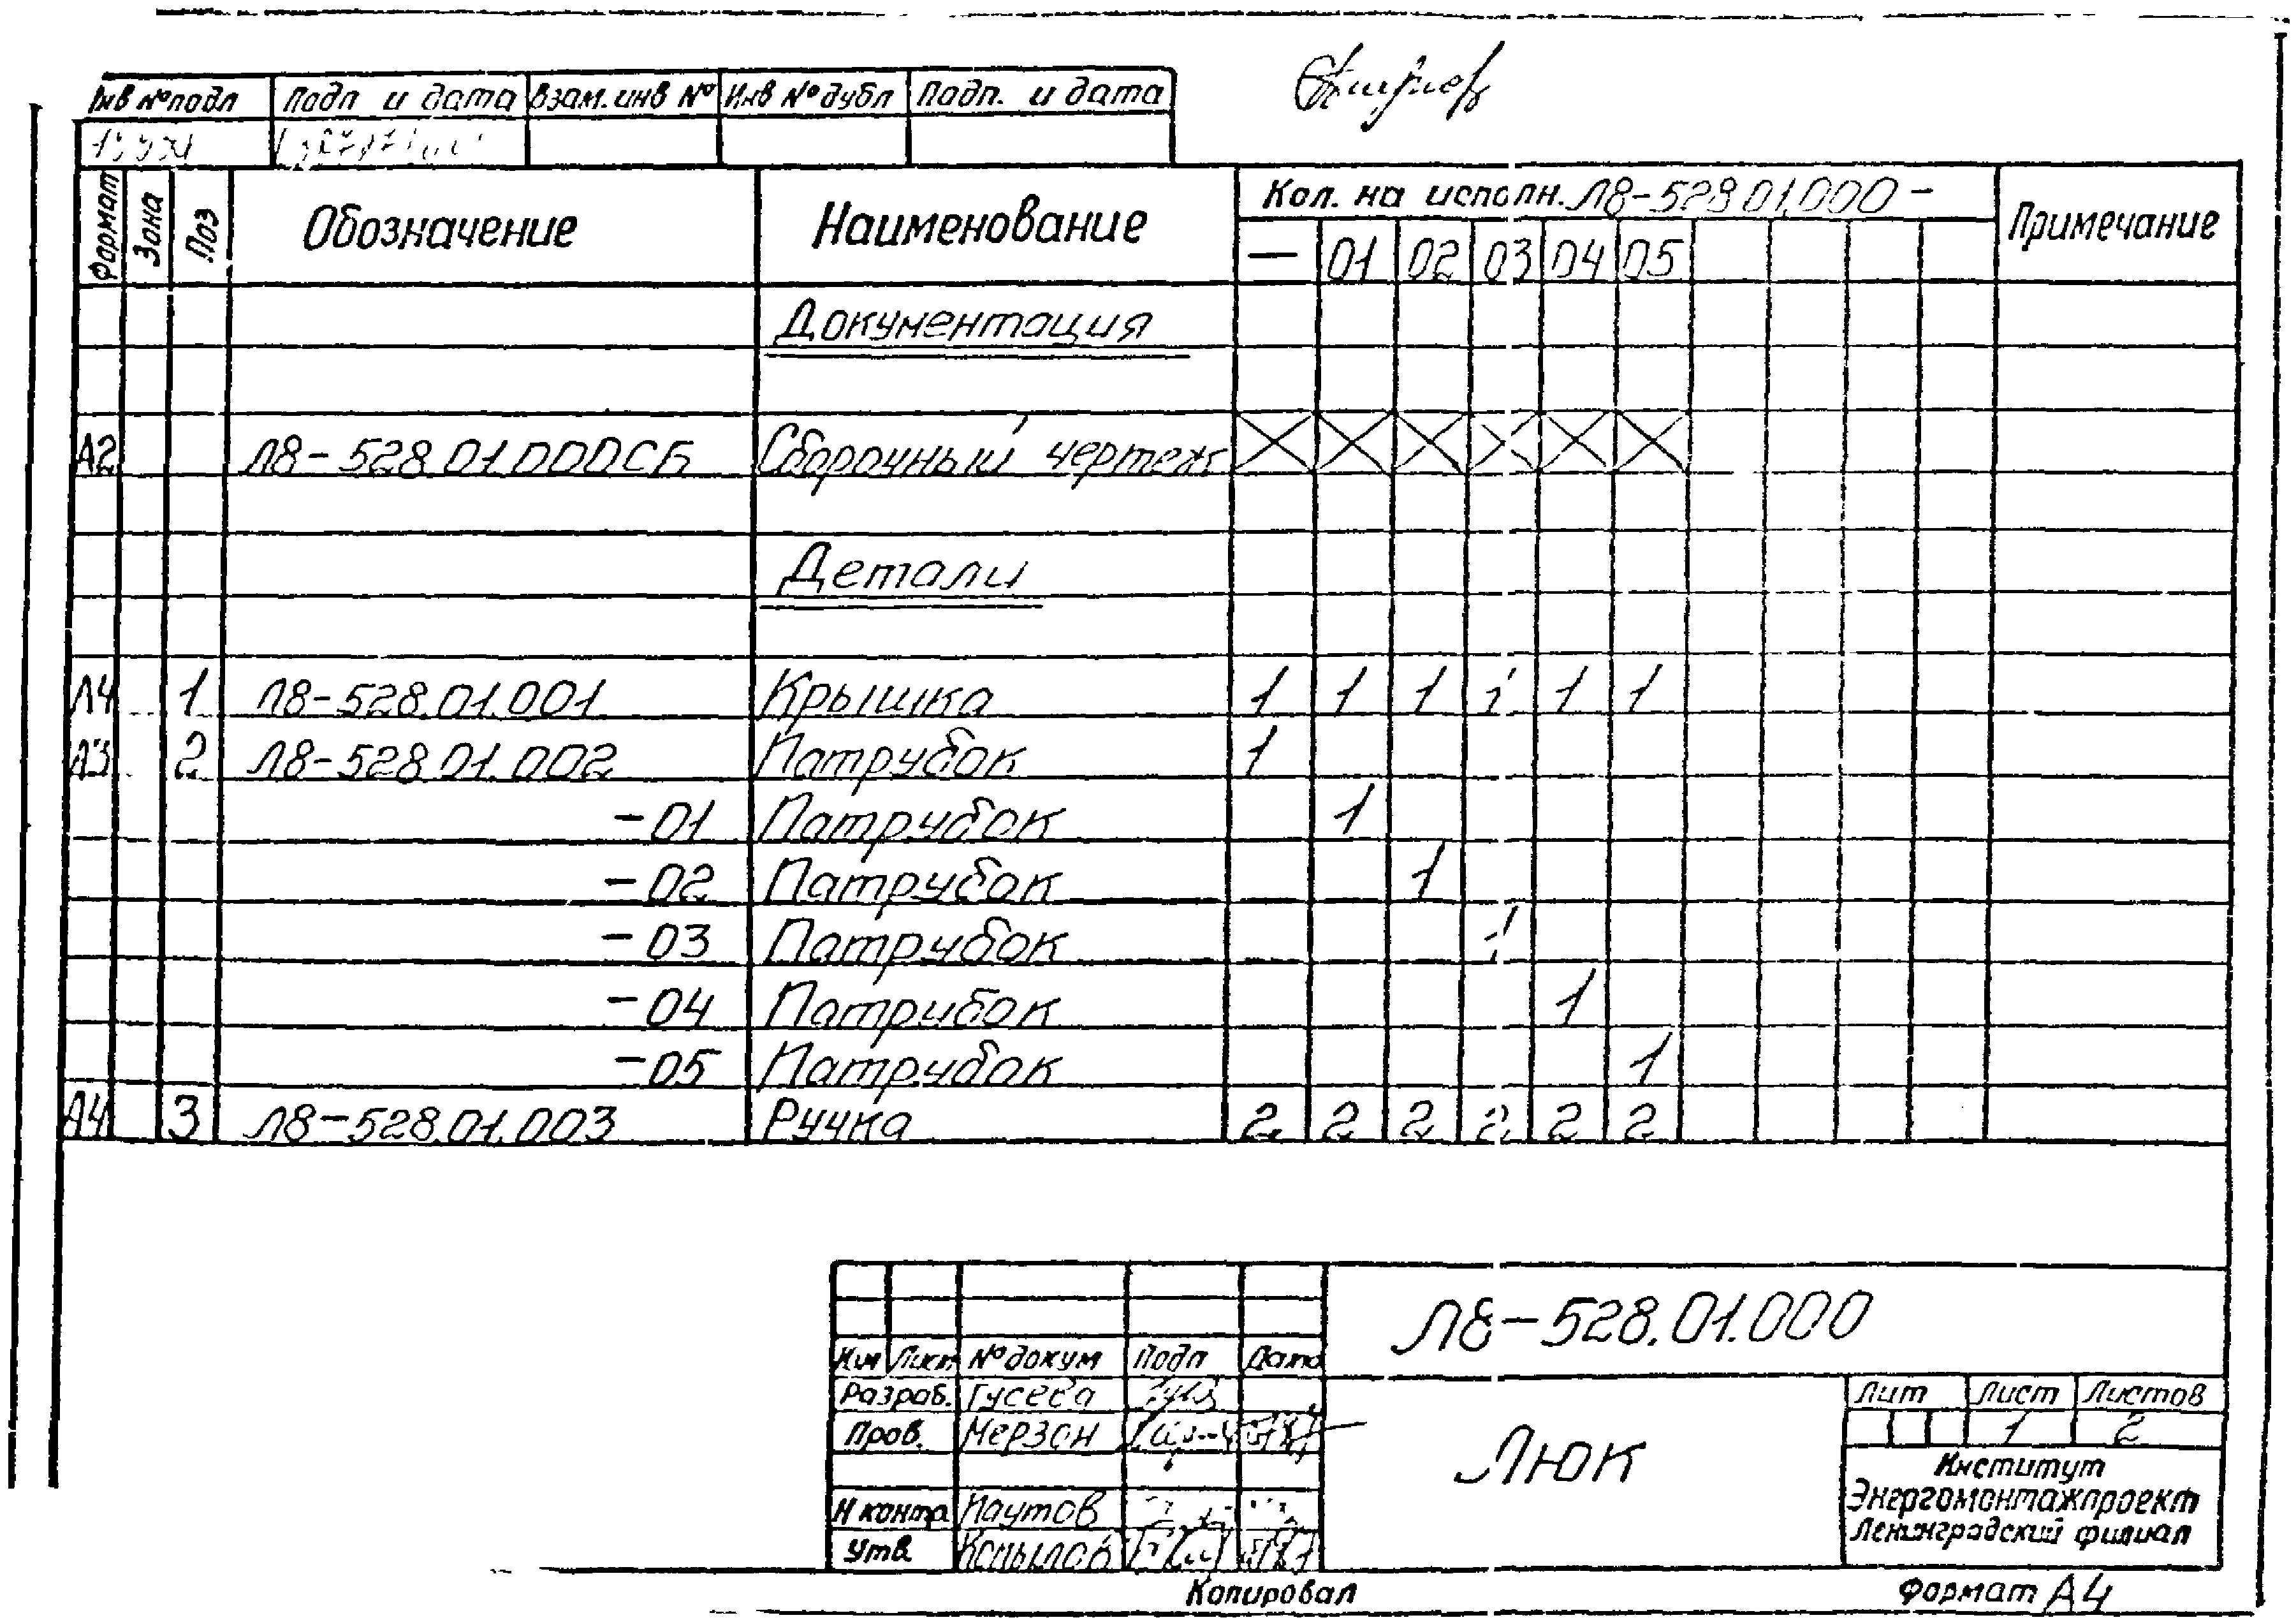 Инв № подл Подп и дата Взам. инв № Инв № дубл Подп. и дата
Формат Зона Поз Обозначение Наименование Кол. на исполн. Л8-528.01.000 - Примечание
— 01 02 03 04 05
Документация
А2 Л8-528.01.000СБ Сборочный чертеж
Детали
А4 1 Л8-528.01.001 Крышка 1 1 1 1 1 1
А3 2 Л8-528.01.002 Патрубок 1
-01 Патрубок 1
-02 Патрубок 1
-03 Патрубок 1
-04 Патрубок 1
-05 Патрубок 1
А4 3 Л8-528.01.003 Ручка 2 2 2 2 2 2
Л8-528.01.000
Изм Лист № докум Подп Дата
Разраб. Гусева
Пров. Мерзон
Н контр Паутов
Утв. Копылов
Люк
Лит Лист Листов
1 2
Институт
Энергомонтажпроект
Ленинградский филиал
Копировал Формат А4